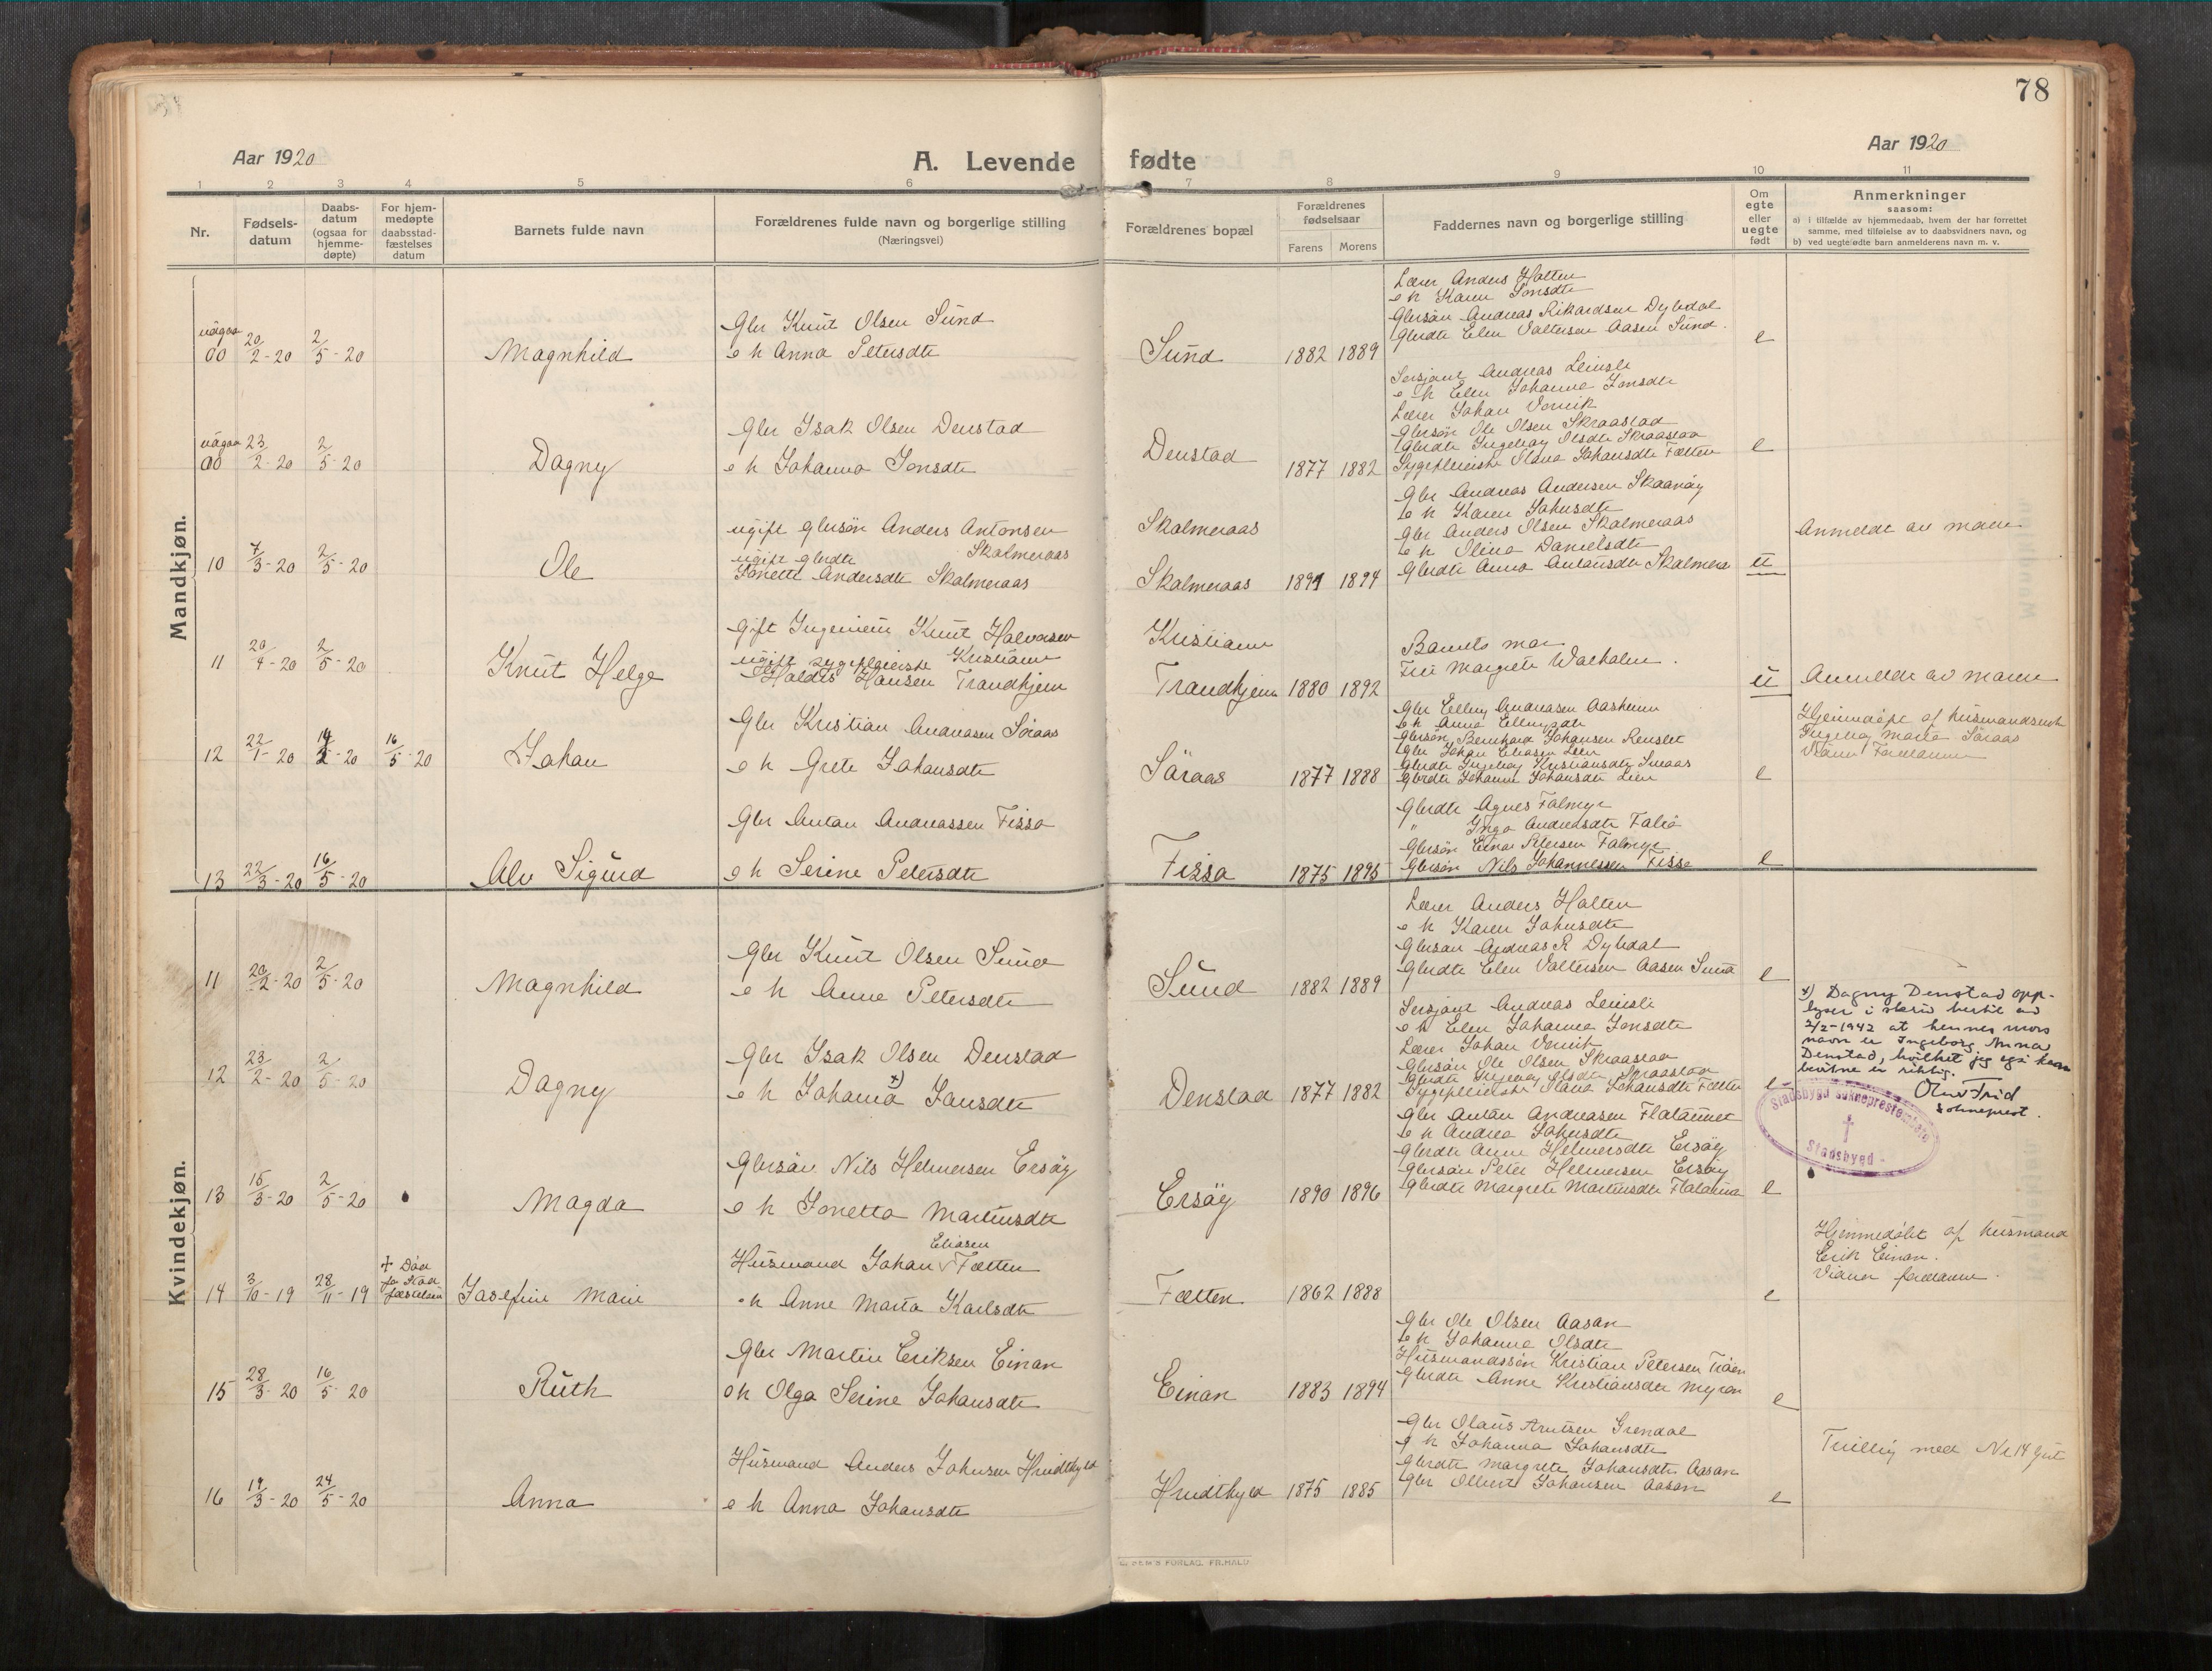 78
Aar 1920
A. Levende fødte
Aar 1920
1 2 3 4 5 6 7 8 9 10 11
Nr.
Fødsels-
datum
Daabs-
datum
(ogsaa for
hjemme-
døpte)
For hjem-
medøpte
daabsstad-
fæstelses
datum
Barnets fulde navn
Forældrenes fulde navn og borgerlige stilling
(Næringsvei)
Forældrenes bopæl
Forældrenes
fødselsaar
Farens Morens
Faddernes navn og borgerlige stilling
Om
egte
eller
uegte
født
Anmerkninger
saasom:
a) i tilfælde av hjemmedaab, hvem der har forrettet
samme, med tilføielse av to daabsvidners navn, og
b) ved uegtefødte barn anmelderens navn m. v.
Mandkjøn.
udgaa
00 20/2-20 2/5-20 Magnhild
Gbr Knut Olsen Sund
e h Anna Petersdtr
Sund 1882 1889
Lærer Anders Holten
e h Karen Jonsdtr
Gbrsøn Andreas Rikardsen Dybdal
Gbrdtr Elen Valtersen Aasen Sund.
e
udgaa
00 23/2-20 2/5-20 Dagny
Gbr Isak Olsen Denstad
e h Johanna Jonsdtr
Denstad 1877 1882
Sersjant Andreas Leinsli
e h Elen Johanna Jonsdtr
Lærer Johan Vernik
Gbrsøn Ole Olsen Skraastad
Gbrdtr Ingeborg Olsdtr Skraastad
Sygepleierske Olava Johansdtr Fætten
e
10 7/3-20 2/5-20 Ole
ugift gbrsøn Anders Antonsen
Skalmeraas
ugift gbrdtr
Jonette Andersdtr Skalmeraas
Skalmeraas
Skalmeraas 1891 1894
Gbr Andreas Andersen Skaanøy
e h Karen Johnsdtr
Gbr Anders Olsen Skalmeraas
e h Olina Danielsdtr
Gbrdtr Anna Antonsdtr Skalmera
u
Anmeldt av moren
11 20/4-20 2/5-20 Knut Helge
Gift Ingeniør Knut Halvorsen
Kristiania
ugift sygepleierske
Haldis Hansen Trondhjem
Kristiania
Trondhjem 1880 1892
Barnets mor
Fru Margrete Walhalen.
u
Anmeldt av moren
12 22/1-20 14/2-20 16/5-20 Johan
Gbr Kristian Andreasen Søraas
e h Grete Johansdtr
Søraas 1877 1888
Gbr Elling Andreasen Aasheim
e h Anna Ellingsdtr
Gbrsøn Bernhard Johansen Renslet
Gbr Johan Eliasen Leen
Gbrdtr Ingeborg Kristiansdtr Søraas
Gbrdtr Johanna Johansdtr Leen
e
Hjemmdøpt af husmandsenk
Ingeborg Marta Søraas
Vidner Forældrene
13 22/3-20 16/5-20 Alv Sigurd
Gbr Anton Andreassen Fissa
e h Serine Petersdtr
Fissa 1875 1895
Gbrdtr Agnes Falmyr
" Inga Andreasdtr Falia
Gbrsøn Einar Petersen Falmyr
Gbrsøn Nils Johannessen Fissa
e
Kvindekjøn.
11 20/2-20 2/5-20 Magnhild
Gbr Knut Olsen Sund
e h Anne Petersdtr
Sund 1882 1889
Lærer Anders Holten
e h Karen Johnsdtr
Gbrsøn Andreas R Dybdal
Gbrdtr Elen Valtersen Aasen Sund
e
12 23/2-20 2/5-20 Dagny
Gbr Isak Olsen Denstad
e h Johanna x) Jonsdtr
Denstad 1877 1882
Sersjant Andreas Leinsli
e h Elen Johanna Jonsdtr
Lærer Johan Vernik
Gbrsøn Ole Olsen Skraastad
Gbrdtr Ingeborg Olsdtr Skraastad
Sygepleierske Olava Johansdtr Fætten
e
x) Dagny Denstad opp-
lyser i skriv hertil av
2/2-1942 at hennes mors
navn er Ingeborg Anna
Denstad, hvilket jeg også kan
bevitne er riktig.
sokneprest.
Stadsbygd sokneprestembete
Stadsbygd
13 15/3-20 2/5-20 Magda
Gbrsøn Nils Helmersen Ersøy
e h Jonetta Martinsdtr
Ersøy 1890 1896
Gbr Anton Andreasen Flataunet
e h Andrea Johnsdtr
Gbrdtr Anna Helmersdtr Ersøy
Gbrsøn Peter Helmersen Ersøy
Gbrdtr Margrete Martinsdtr Flatauna
e
14 3/10-19 28/11-19 + Død
før Stad
fæstelsen
Josefine Marie
Husmand Johan Eliasen Fætten
e h Anne Marta Karlsdtr
Fætten 1862 1888
e
Hjemmedøbt af husmand
Erik Einan.
Vidner forældrene.
15 28/3-20 16/5-20 Ruth
Gbr Martin Eriksen Einan
e h Olga Serine Johansdtr
Einan 1883 1894
Gbr Ole Olsen Aasan
e h Johanna Olsdtr
Husmandssøn Kristian Petersen Trøen
Gbrdtr Anne Kristiansdtr Myran
e
16 19/3-20 24/5-20 Anna
Husmand Anders Johnsen Hindthyld
e h Anna Johansdtr
Hindthyld 1875 1885
Gbr Olaus Arntsen Grendal
e h Johanna Johansdtr
Gbrdtr Margrete Johansdtr Aasan
Gbr Olbert Johansen Aasan
e
Tvilling med Nr 14 gut
SEM'S FORLAG, FR.HALD